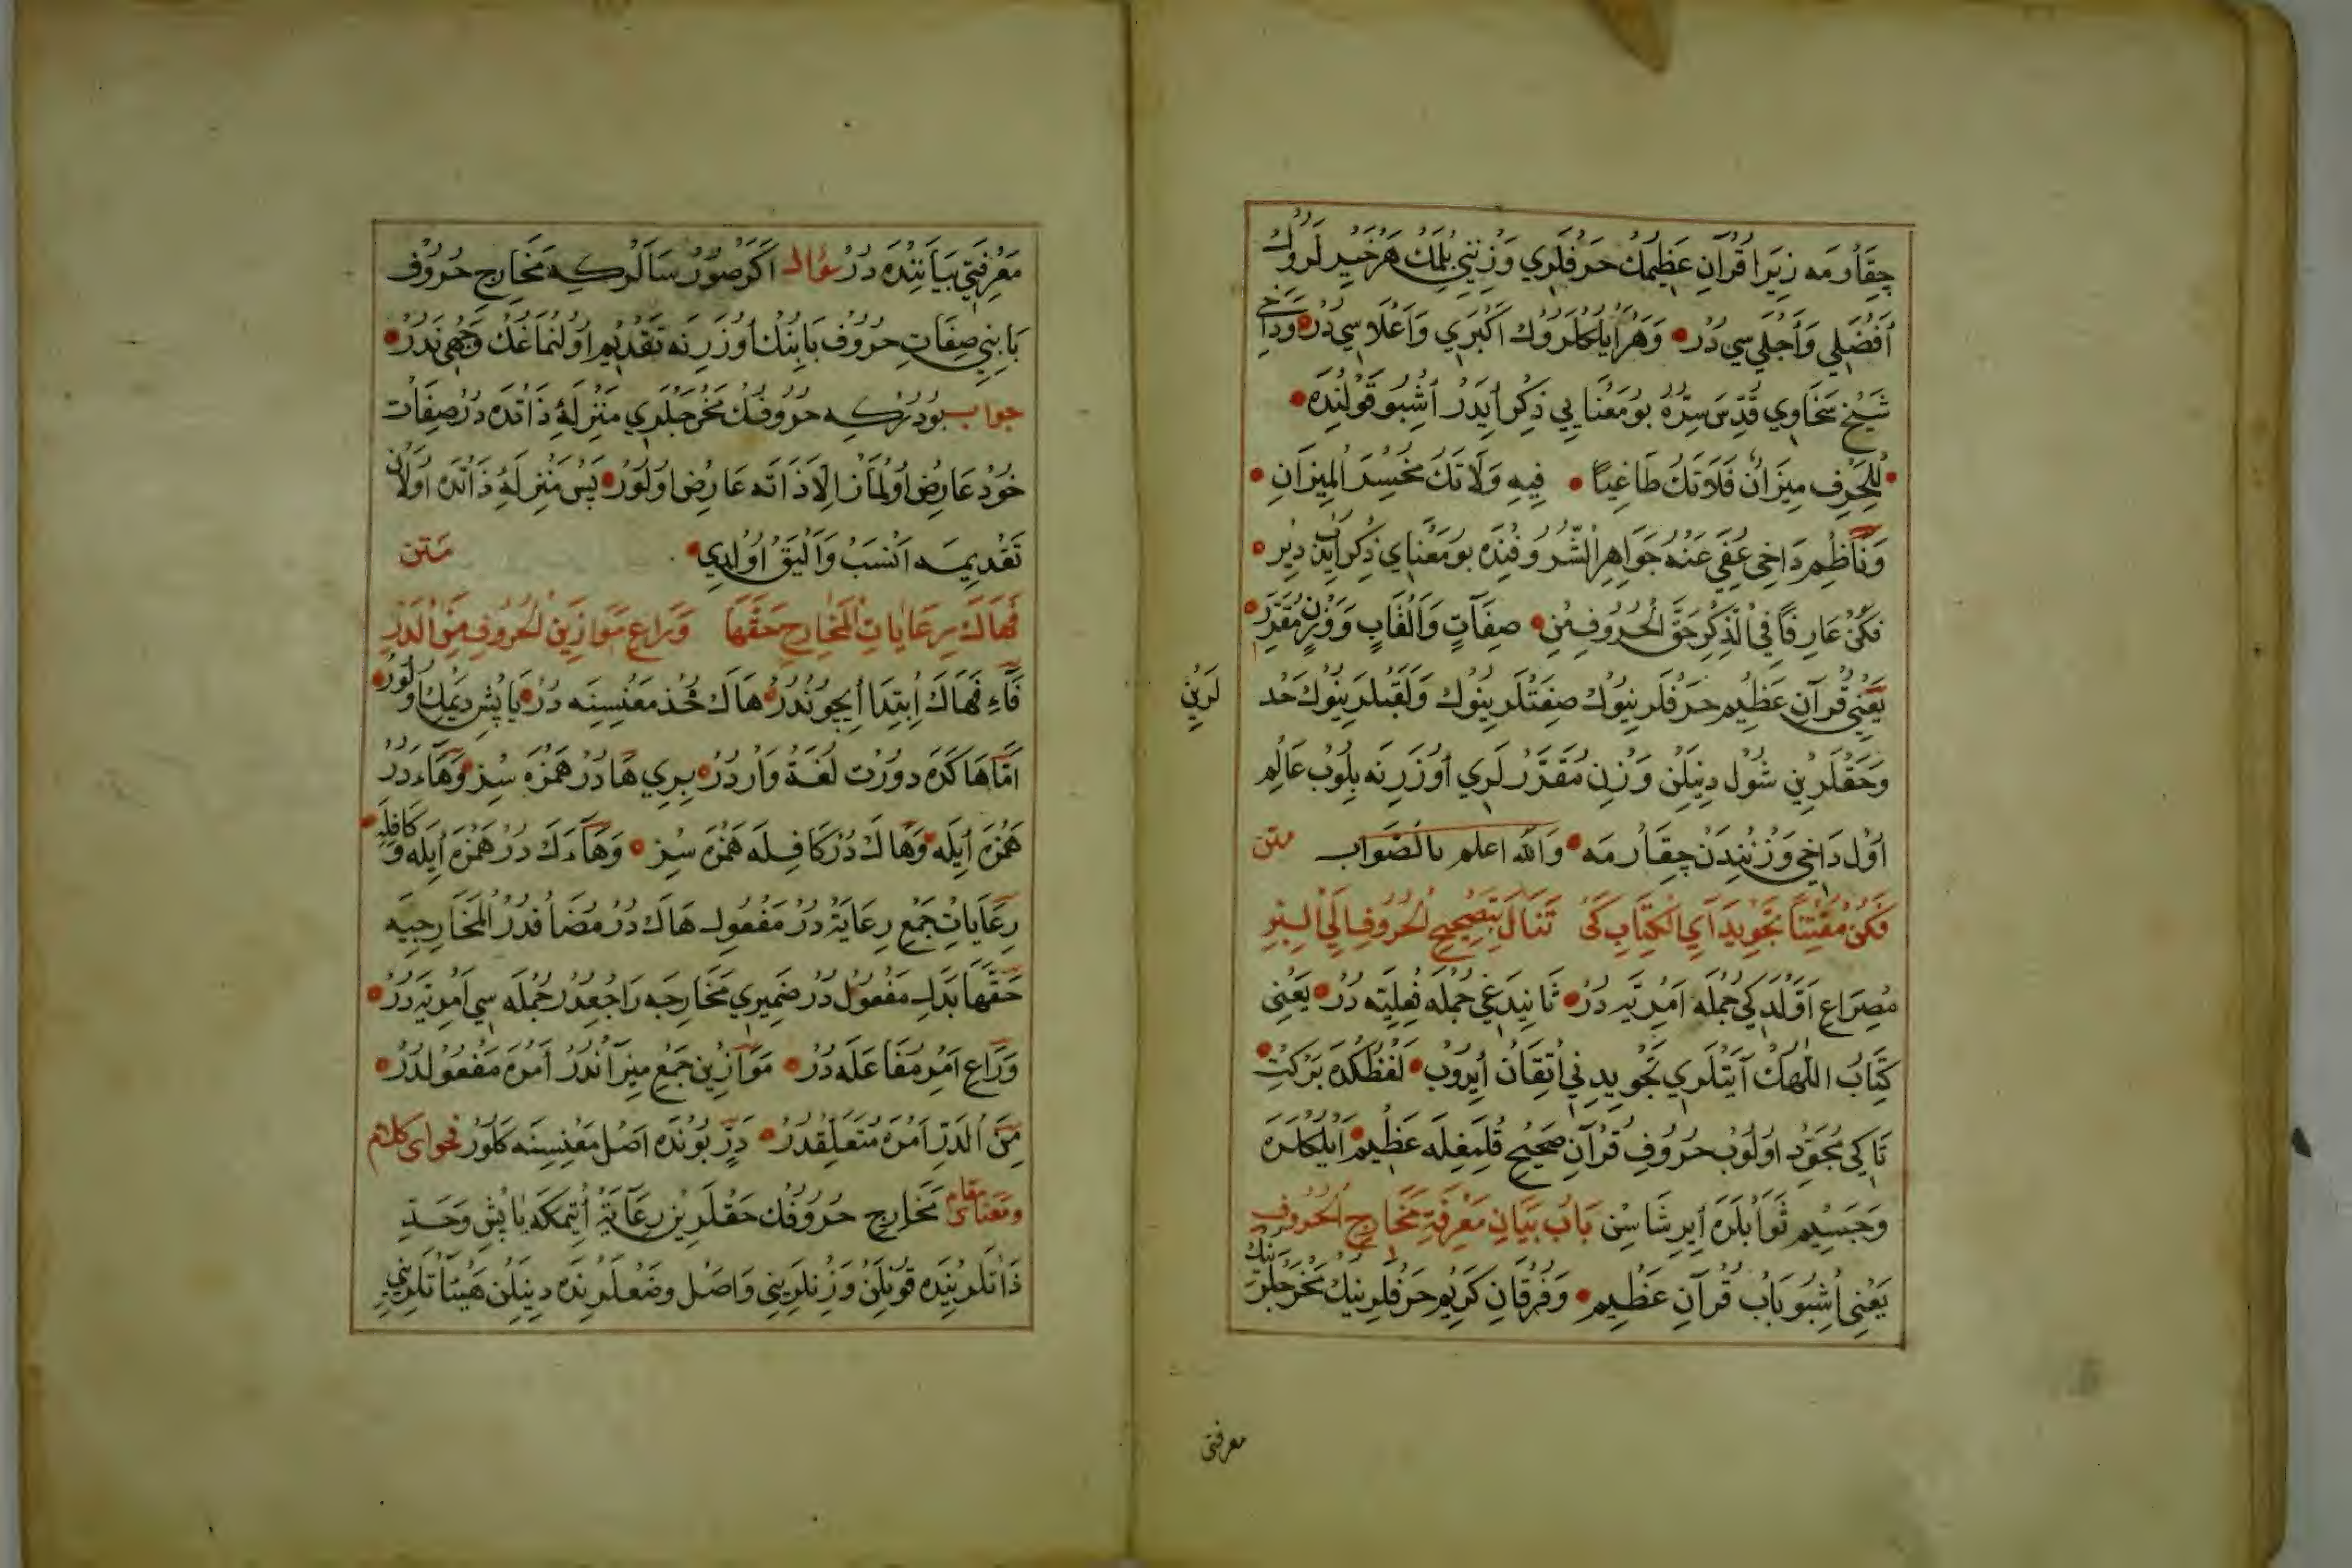 چِقَارمَه زِيَرا قُرآنِ عَظِيمُك حَرفلَرِي وَزنِنِي بِلمَك هَر خَيرلَرُوك
اَفضَلِي وَاَجلَي سِي دُر وَهَر اَيلكلَرُوك اَكبَرِي وَاَعلَا سِي دُر وَدَاخِي
شَيخِ سَخَاوِي قُدِّسَ سِرُّهُ بُو مَعنَايِي ذِكر اَيدَر اُشبُو قَولِندَه
لِلحَرفِ مِيزَانٌ فَلَا تَكُ طَاغِيًا فِيهِ وَلَا تَكُ مُخسِرَ المِيزَانِ
وَنَاظِم دَاخِي عُفِيَ عَنهُ جَوَاهِر الشُّرُوفِندَه بُو مَعنَاي ذِكر اَيدَن دِير
فَكُن عَارِفًا فِي الذِّكرِ حَقَّ الحُرُوفِ مِن صِفَاتٍ وَاَلقَابٍ وَوَزنٍ مُقَدَّرِ
يَعنِي قُرآنِ عَظِيم حَرفلَرِينُوك صِفَتلَرِينُوك وَلَقَبلَرِينُوك حَد
لَرِين
وَحَقلَرِين شُول دِينِلَن وَزنِ مُقَدَّرلَرِي اُوزَرِنَه بِلُوب عَالِم
اُول دَاخِي وَزنِندَن چِقَارمَه وَاللّه اعلم بالصَّوَاب متن
فَكُن مُتقِنًا تَجوِيدَ آيِ الكِتَابِ كَي تَنَالَ بِتَصحِيحِ الحُرُوفِ اِلَي البِرِّ
مِصرَاعِ اَوَّلدَكِي جُملَه اَمرِيَّه دُر ثَانِيدَغِي جُملَه فِعلِيَّه دُر يَعنِي
كِتَابُ اللّهُك آيَتلَرِي تَجوِيدِنِي اِتقَان اَيدُوب لَفظُكدَه بَركِت
تَا كِي مُجَوِّد اُولُوب حُرُوفِ قُرآنِ صَحِيح قُلمَغِلَه عَظِيم اَيلكلَرَه
وَجَسِيم ثَوَابلَرَه اَيرِشَاسِن بَابُ بَيَانِ مَعرِفَةِ مَخَارِجِ الحُرُوفِ
يَعنِي اُشبُو بَاب قُرآنِ عَظِيم وَفُرقَانِ كَرِيم حَرفلَرِينُك مَخرَجلَرِينُك
معرفتى
مَعرِفَتِي بَيَانِندَه دُر سؤال اَكَر صورُرسَالَر كه مَخَارِجِ حُرُوف
بَابِنِي صِفَاتِ حُرُوف بَابِنُك اُوزَرِنَه تَقدِيم اُولُنمَاغُك وَجهِي نَدُر
جواب بُودُر كه حُرُوفُك مَخرَجلَرِي مَنزِلَهٔ ذَاتدَه دُر صِفَات
خُود عَارِض اُولمَاز اِلَّا ذَاتَه عَارِض اُولُور پَس مَنزِلَهٔ ذَاتدَه اُولَان
تَقدِيمَه اَنسَب وَاَليَق اُولدِي متن
فَهَاكَ رِعَايَاتِ المَخَارِجِ حَقَّهَا وَرَاعِ مَوَازِينَ الحُرُوفِ مِنَ الدَّرِّ
فَاءِ فَهَاكَ اِبتِدَا اَيچُوندُر هَاكَ خُذ مَعنِسِنَه دُر يَاپِش دِيمَك اُولُور
اَمَّا هَاكَدَه دورت لُغَة وَاردُر بِرِي هَا دُر هَمزَه سِز وَهَاءَ دُر
هَمزَه اَيلَه وَهَاكَ دُر كَافِلَه هَمزَه سِز وَهَاءَكَ دُر هَمزَه اَيلَه وَ كَافِلَه
رِعَايَاتِ جَمعِ رِعَايَة دُر مَفعُول هَاكَ دُر مُضَافدُر المَخَارِجِيَه
حَقَّهَا بَدَلِ مَفعُول دُر ضَمِيرِي مَخَارِجَه رَاجِعدُر جُملَه سِي اَمرِيَّه دُر
وَرَاعِ اَمرِ مُفَاعَلَه دُر مَوَازِين جَمعِ مِيزَاندُر اَمرَه مَفعُولدُر
مِنَ الدَّرِّ اَمرَه مُتَعَلِّقدُر دَرّ بُوندَه اَصل مَعنِسِنَه كَلُور فحواى كلام
ومعناى مقام مَخَارِجِ حُرُوفُك حَقلَرِين رِعَايَة اَتِمكَه يَاپِش وَحَدِّ
ذَاتلَرِيندَه قُونِلَن وَزنلَرِينِي وَاَصل وَضعلَرِندَه دِينِلَن هَيئَاتلَرِينِي